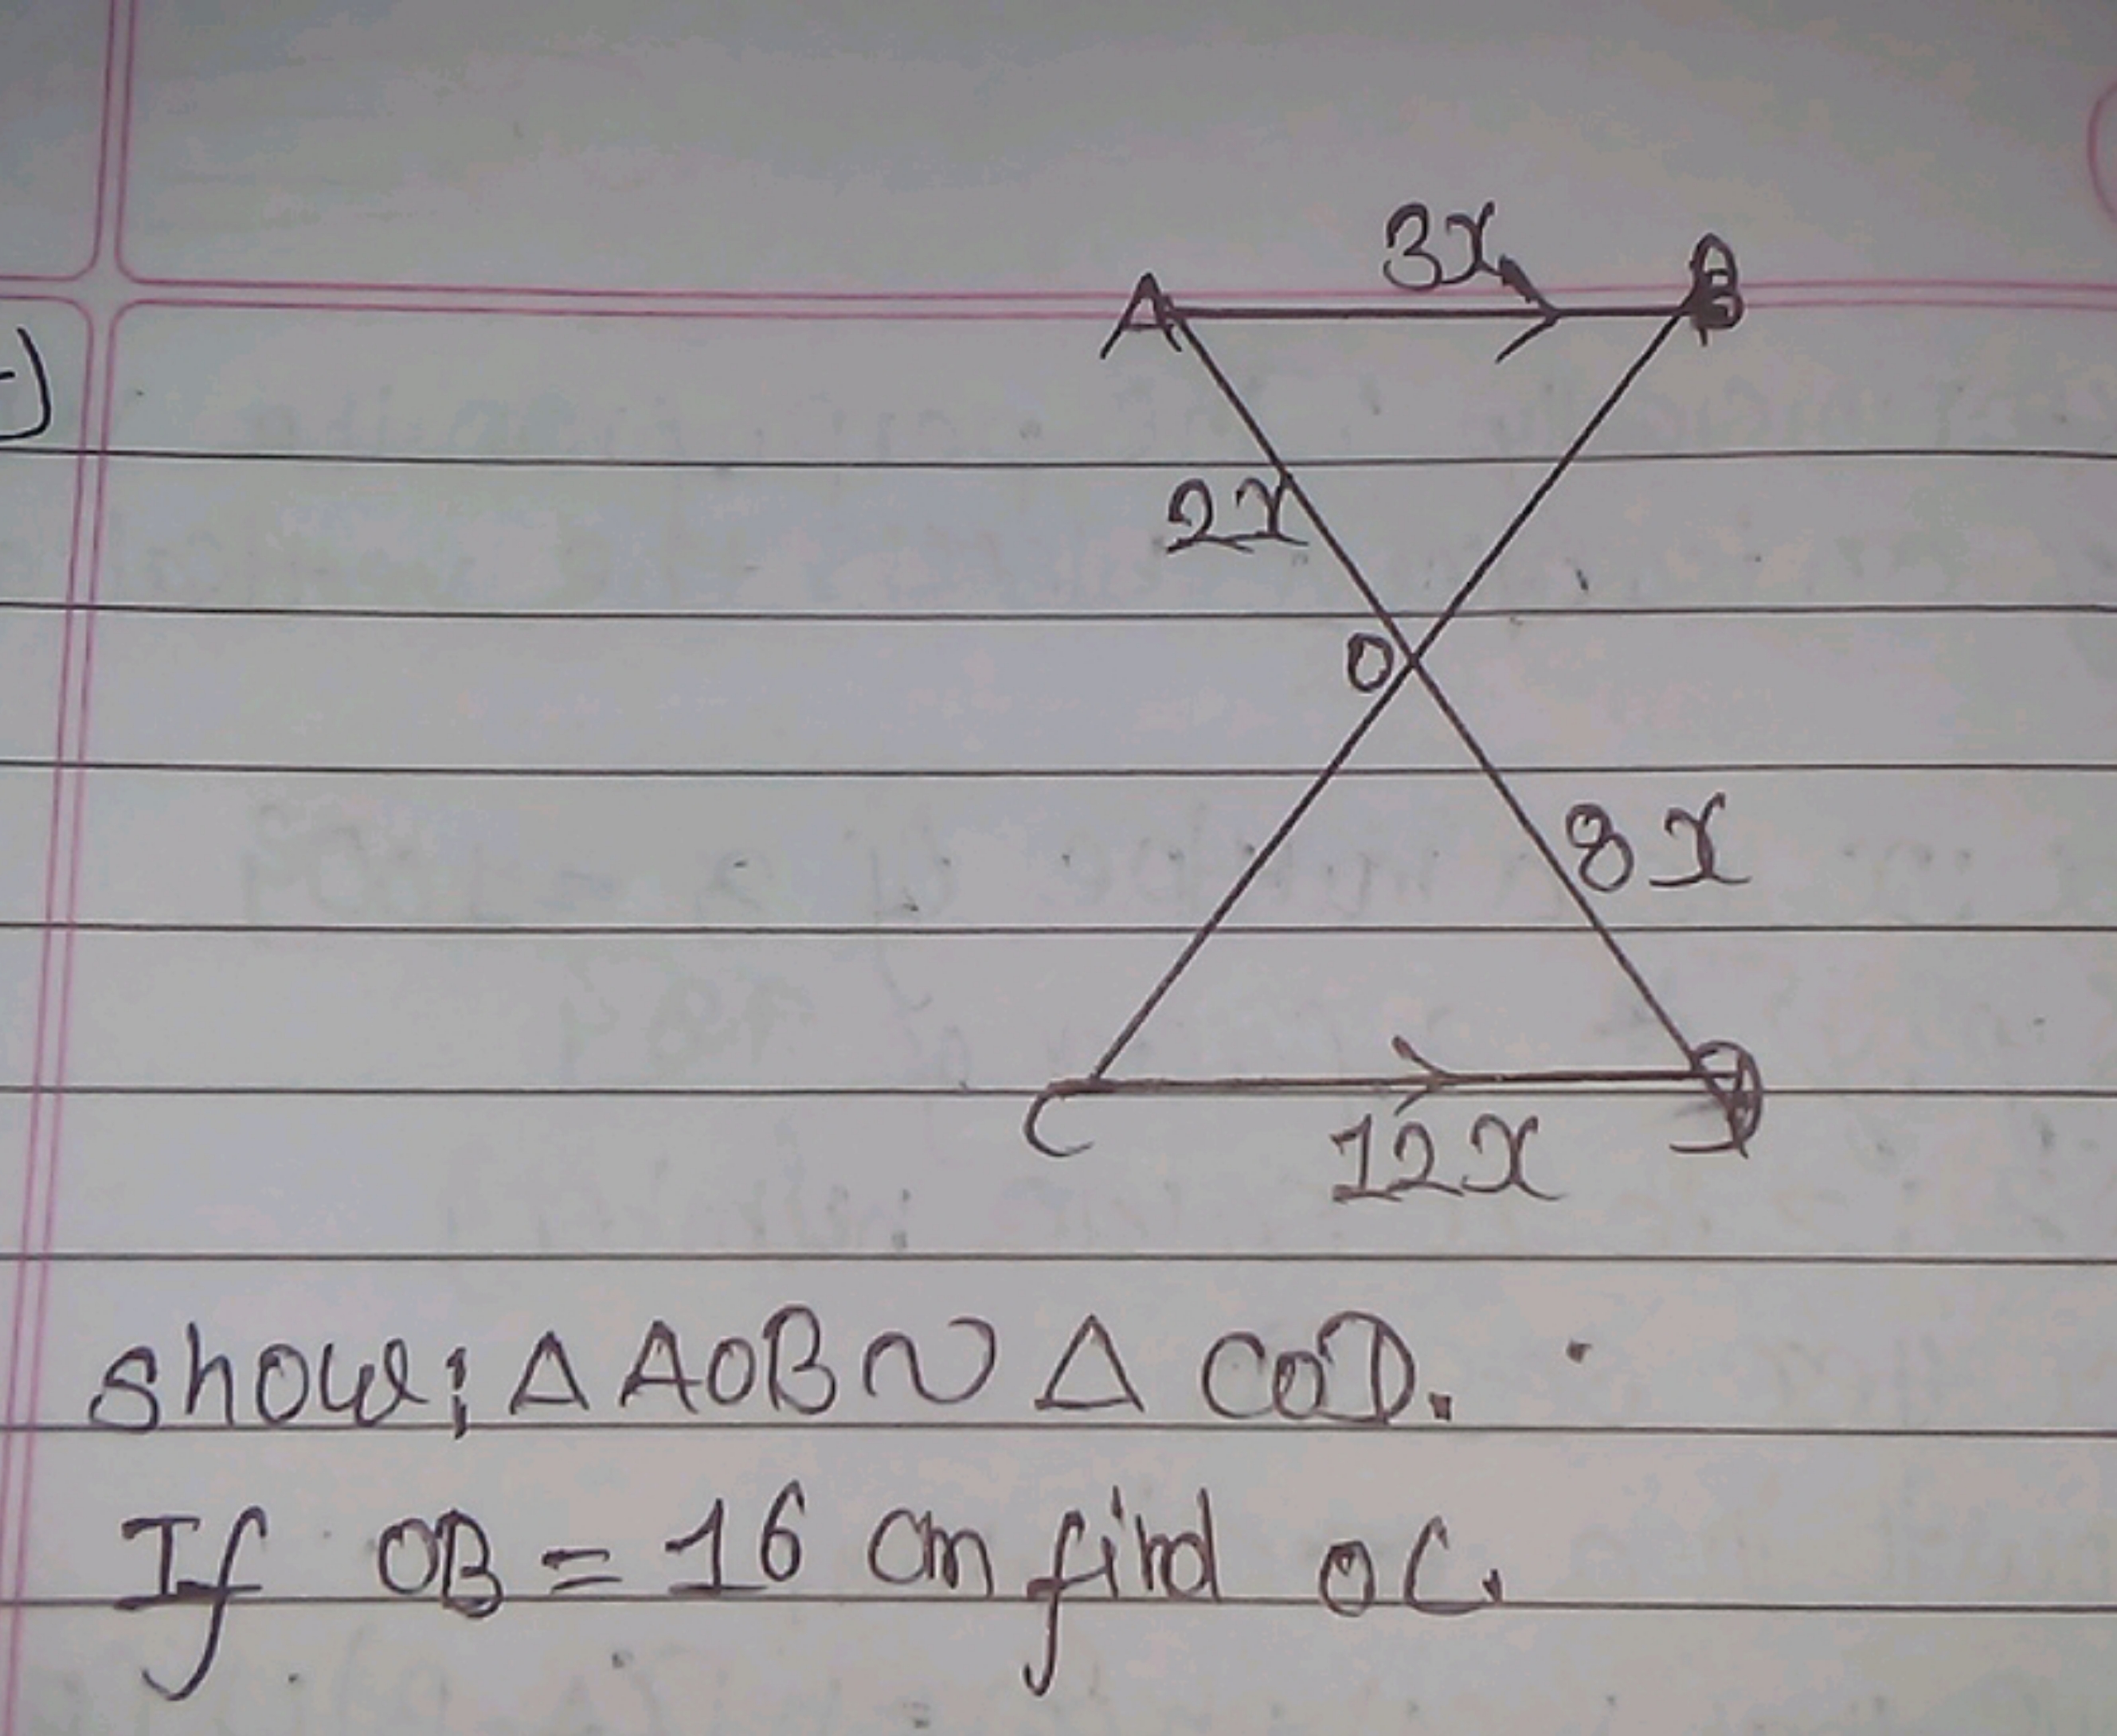 3x
A B
2x
O
8x
C D
12x
show: Δ AOB ~ Δ COD.
If OB = 16 cm find OC.